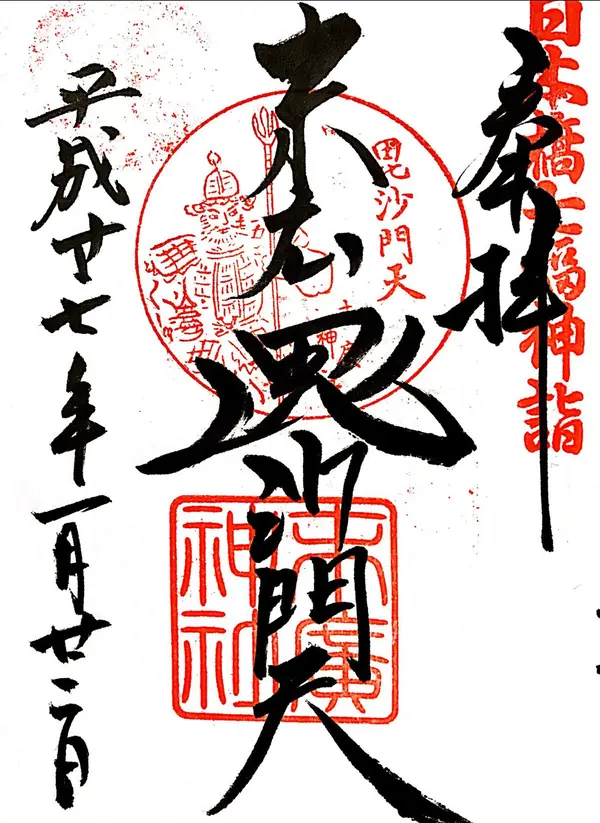 日本橋七福神詣
奉拝
末広毘沙門天
毗沙門天
末廣神社
平成廿七年一月廿二日